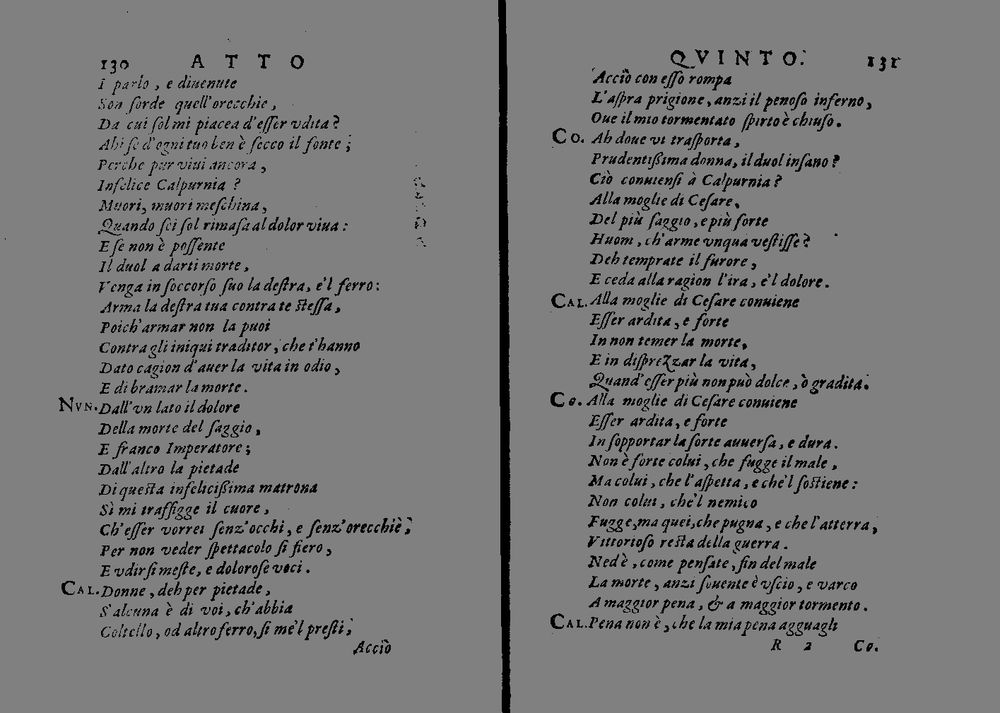 130 ATTO
I parlo, e diuenute
Son ſorde quell'orecchie,
Da cui ſol mi piacea d'eſſer vdita?
Ahi ſe d'ogni tuo ben è ſecco il fonte;
Perche pur viui ancora,
Infelice Calpurnia?
Muori, muori meſchina,
Quando ſei ſol rimaſa al dolor viua:
E ſe non è poſſente
Il duol a darti morte,
Venga in ſoccorſo ſuo la deſtra, e'l ferro:
Arma la deſtra tua contra te ſteſſa,
Poich'armar non la puoi
Contra gli iniqui traditor, che t'hanno
Dato cagion d'auer la vita in odio,
E di bramar la morte.
NVN. Dall'vn lato il dolore
Della morte del ſaggio,
E franco Imperatore;
Dall'altro la pietade
Di queſta infeliciſſima matrona
Sì mi traffigge il cuore,
Ch'eſſer vorrei ſenz'occhi, e ſenz'orecchie,
Per non veder ſpettacolo ſi fiero,
E vdir ſi meſte, e doloroſe voci.
CAL. Donne, deh per pietade,
S'alcuna è di voi, ch'abbia
Coltello, od altro ferro, ſi me'l preſti,
Acciò
QVINTO. 131
Acciò con eſſo rompa
L'aſpra prigione, anzi il penoſo inferno,
Oue il mio tormentato ſpirto è chiuſo.
CO. Ah doue vi traſporta,
Prudentiſſima donna, il duol inſano?
Ciò conuienſi à Calpurnia?
Alla moglie di Ceſare,
Del più ſaggio, e più forte
Huom, ch'arme vnqua veſtiſſe?
Deh temprate il furore,
E ceda alla ragion l'ira, e'l dolore.
CAL. Alla moglie di Ceſare conuiene
Eſſer ardita, e forte
In non temer la morte,
E in diſprezzar la vita,
Quand'eſſer più non può dolce, ò gradita.
CO. Alla moglie di Ceſare conuiene
Eſſer ardita, e forte
In ſopportar la ſorte auuerſa, e dura.
Non è forte colui, che fugge il male,
Ma colui, che l'aſpetta, e che'l ſoſtiene:
Non colui, che'l nemico
Fugge, ma quei, che pugna, e che l'atterra,
Vittorioſo reſta della guerra.
Ned è, come penſate, fin del male
La morte, anzi ſouente è vſcio, e varco
A maggior pena, & a maggior tormento.
CAL. Pena non è, che la mia pena agguagli
R 2 Co.